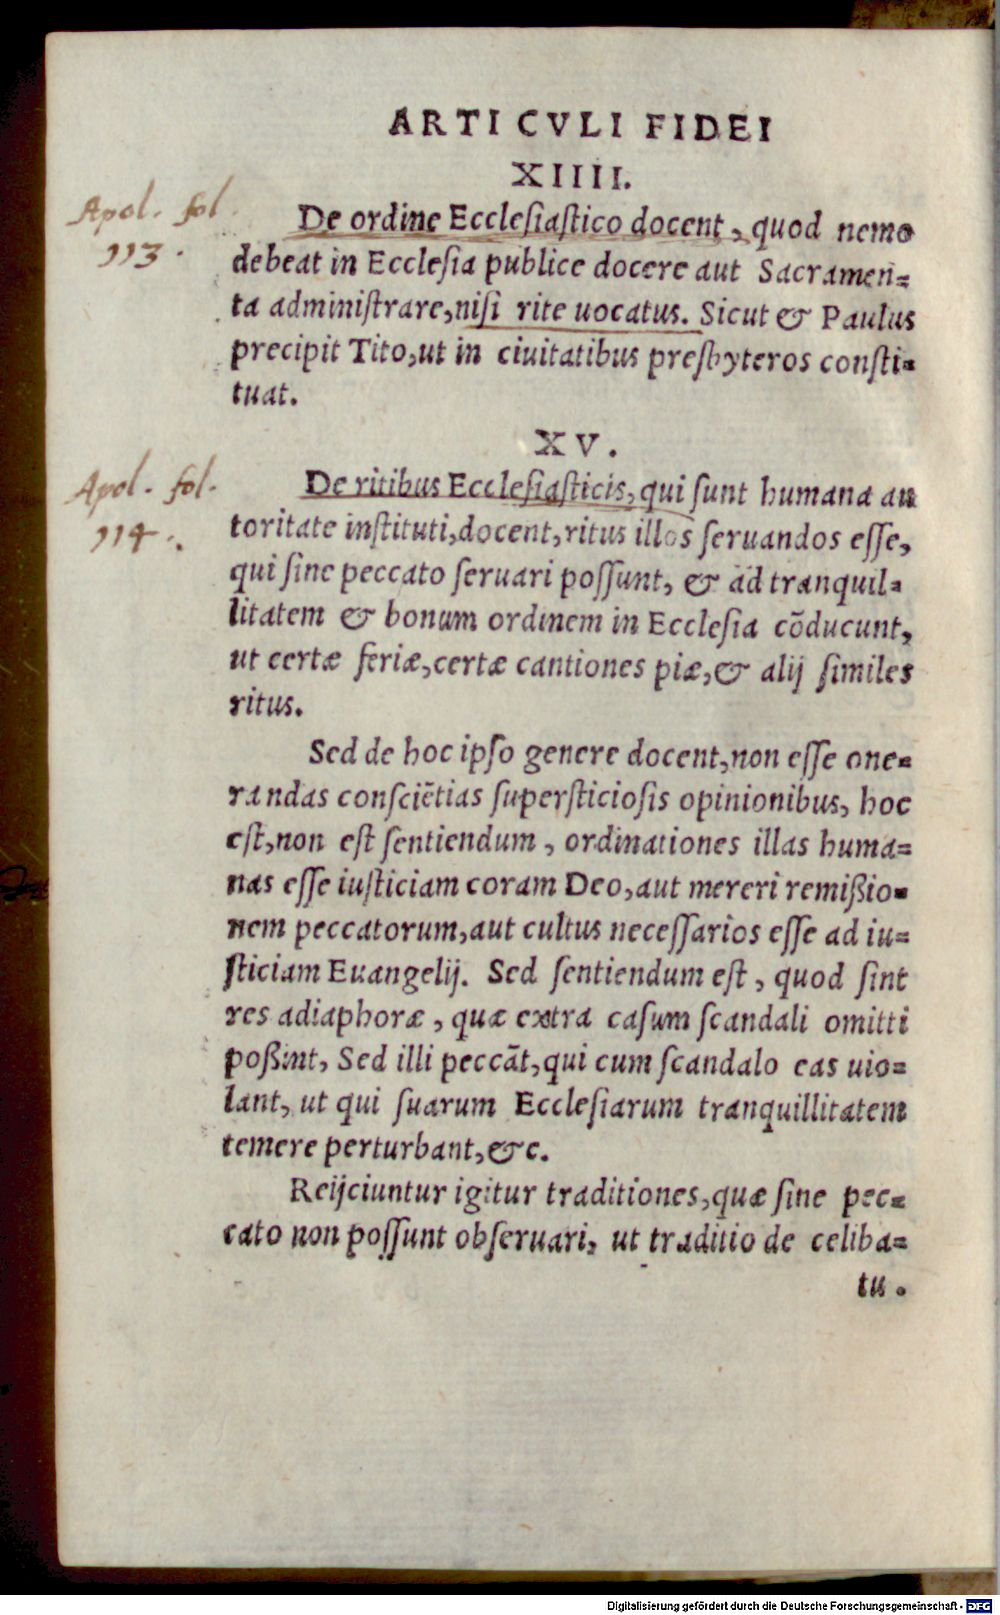 ARTICVLI FIDEI
XIIII.
Apol. fol.
113.
De ordine Ecclesiastico docent, quod nemo
debeat in Ecclesia publice docere aut Sacramen=
ta administrare, nisi rite uocatus. Sicut & Paulus
precipit Tito, ut in ciuitatibus presbyteros consti=
tuat.
XV.
Apol. fol.
114.
De ritibus Ecclesiasticis, qui sunt humana au
toritate instituti, docent, ritus illos seruandos esse,
qui sine peccato seruari possunt, & ad tranquil=
litatem & bonum ordinem in Ecclesia cōducunt,
ut certæ feriæ, certæ cantiones piæ, & alij similes
ritus.
Sed de hoc ipso genere docent, non esse one=
randas consciētias supersticiosis opinionibus, hoc
est, non est sentiendum, ordinationes illas huma=
nas esse iusticiam coram Deo, aut mereri remißio=
nem peccatorum, aut cultus necessarios esse ad iu=
sticiam Euangelij. Sed sentiendum est, quod sint
res adiaphoræ, quæ extra casum scandali omitti
poßint, Sed illi peccāt, qui cum scandalo eas uio=
lant, ut qui suarum Ecclesiarum tranquillitatem
temere perturbant, &c.
Reijciuntur igitur traditiones, quæ sine pec=
cato non possunt obseruari, ut traditio de celiba=
tu.
Digitalisierung gefördert durch die Deutsche Forschungsgemeinschaft - DFG